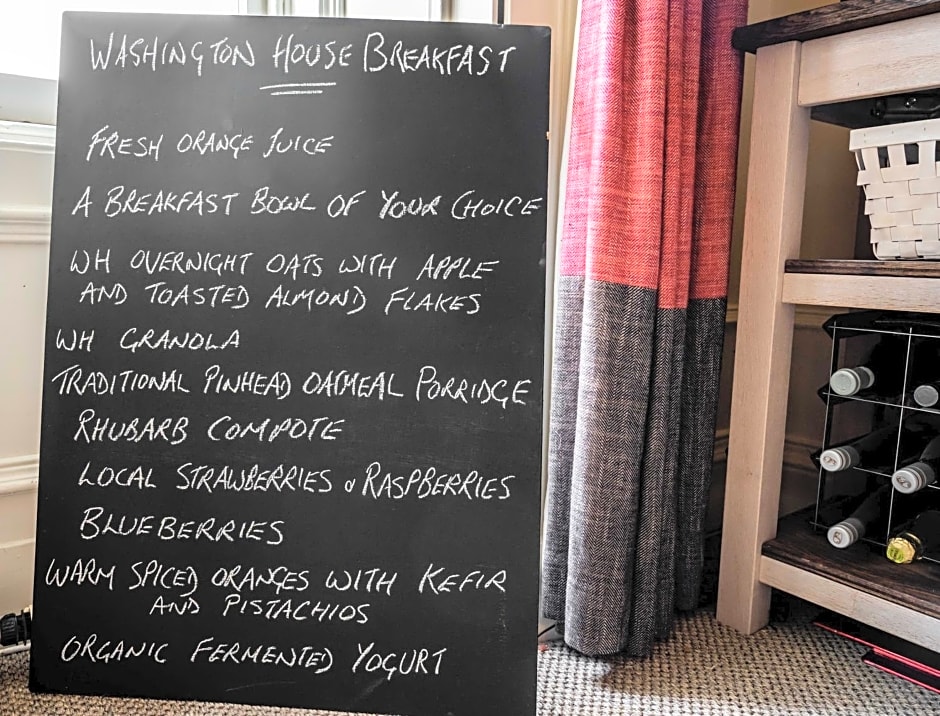 WASHINGTON HOUSE BREAKFAST
FRESH ORANGE JUICE
A BREAKFAST BOWL OF YOUR CHOICE
WH OVERNIGHT OATS WITH APPLE
AND TOASTED ALMOND FLAKES
WH GRANOLA
TRADITIONAL PINHEAD OATMEAL PORRIDGE
RHUBARB COMPOTE
LOCAL STRAWBERRIES & RASPBERRIES
BLUEBERRIES
WARM SPICED ORANGES WITH KEFIR
AND PISTACHIOS
ORGANIC FERMENTED YOGURT